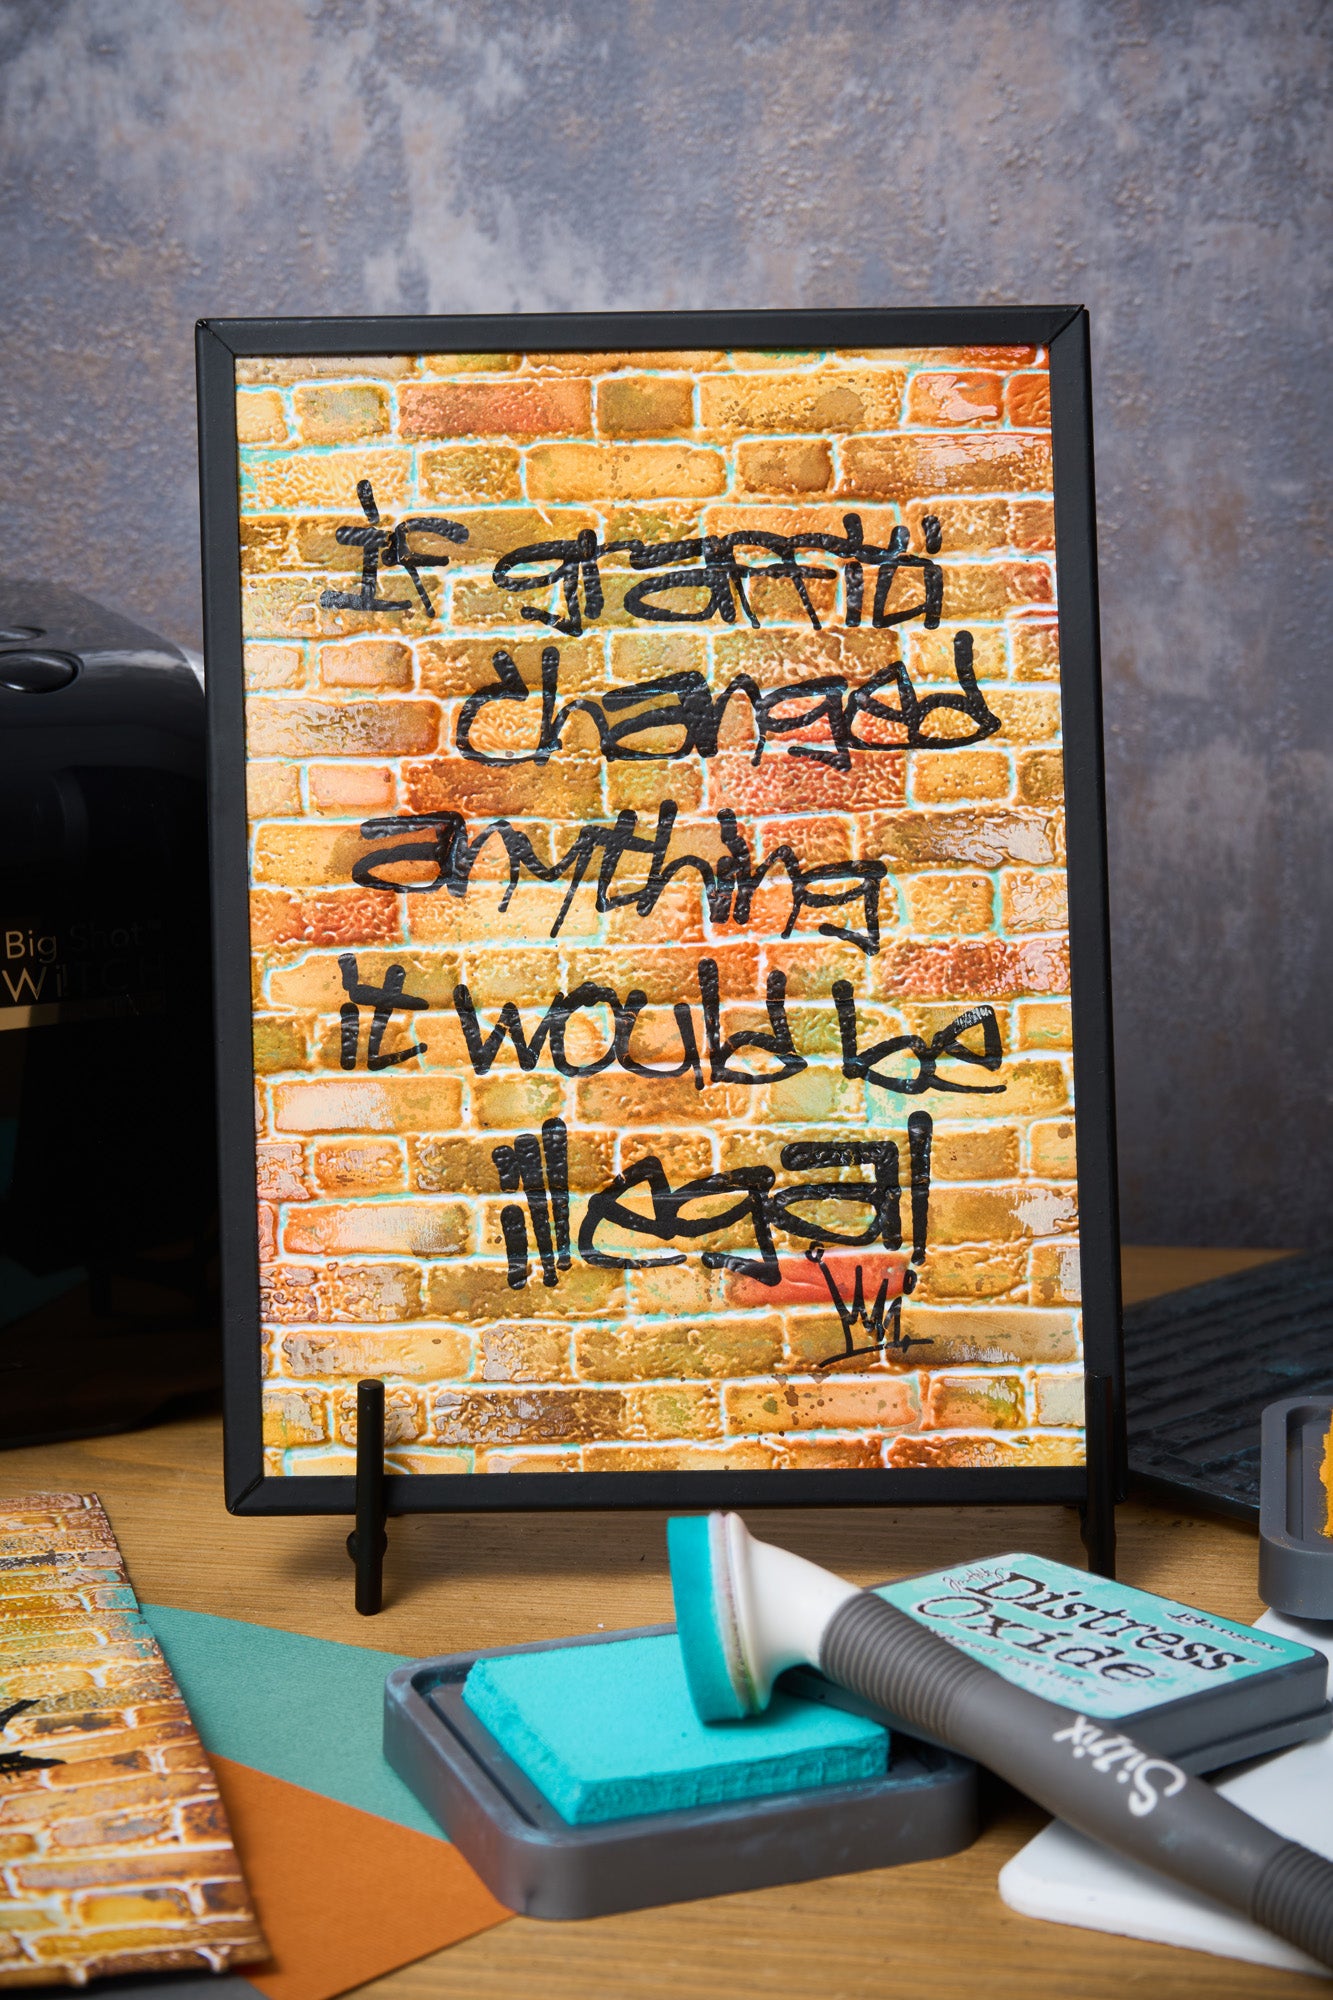 if graffiti
changed
anything
it would be
illegal
Big Shot™
WiTCH
Distress
Oxide®
Ranger
Sizzix